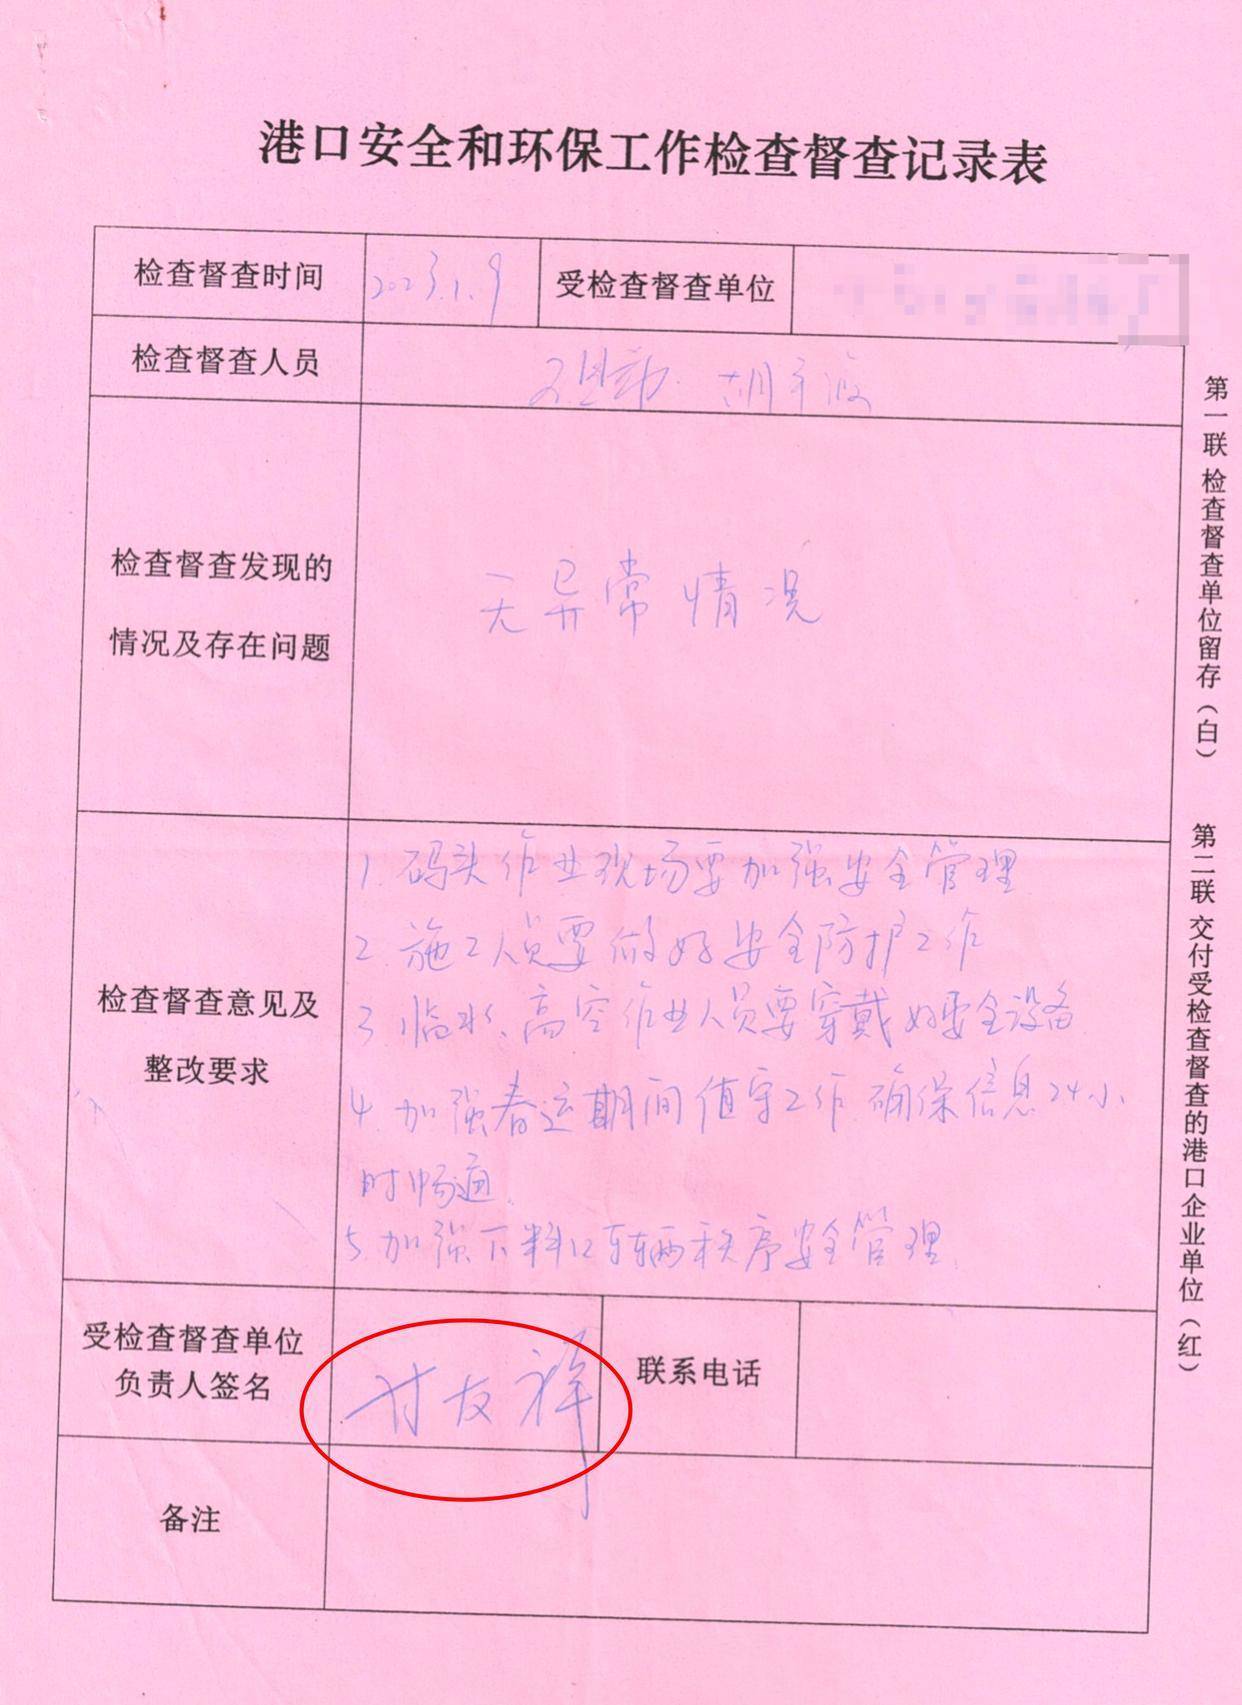 港口安全和环保工作检查督查记录表
检查督查时间 2023.1.9 受检查督查单位
检查督查人员
检查督查发现的
情况及存在问题
无异常情况
检查督查意见及
整改要求
1.码头作业现场要加强安全管理
2.施工人员要做好安全防护工作
3.临水、高空作业人员要穿戴好安全设备
4.加强春运期间值守工作.确保信息24小
时畅通.
5.加强下料口车辆秩序安全管理.
受检查督查单位
负责人签名
付友祥
联系电话
备注
第一联 检查督查单位留存（白）
第二联 交付受检查督查的港口企业单位（红）